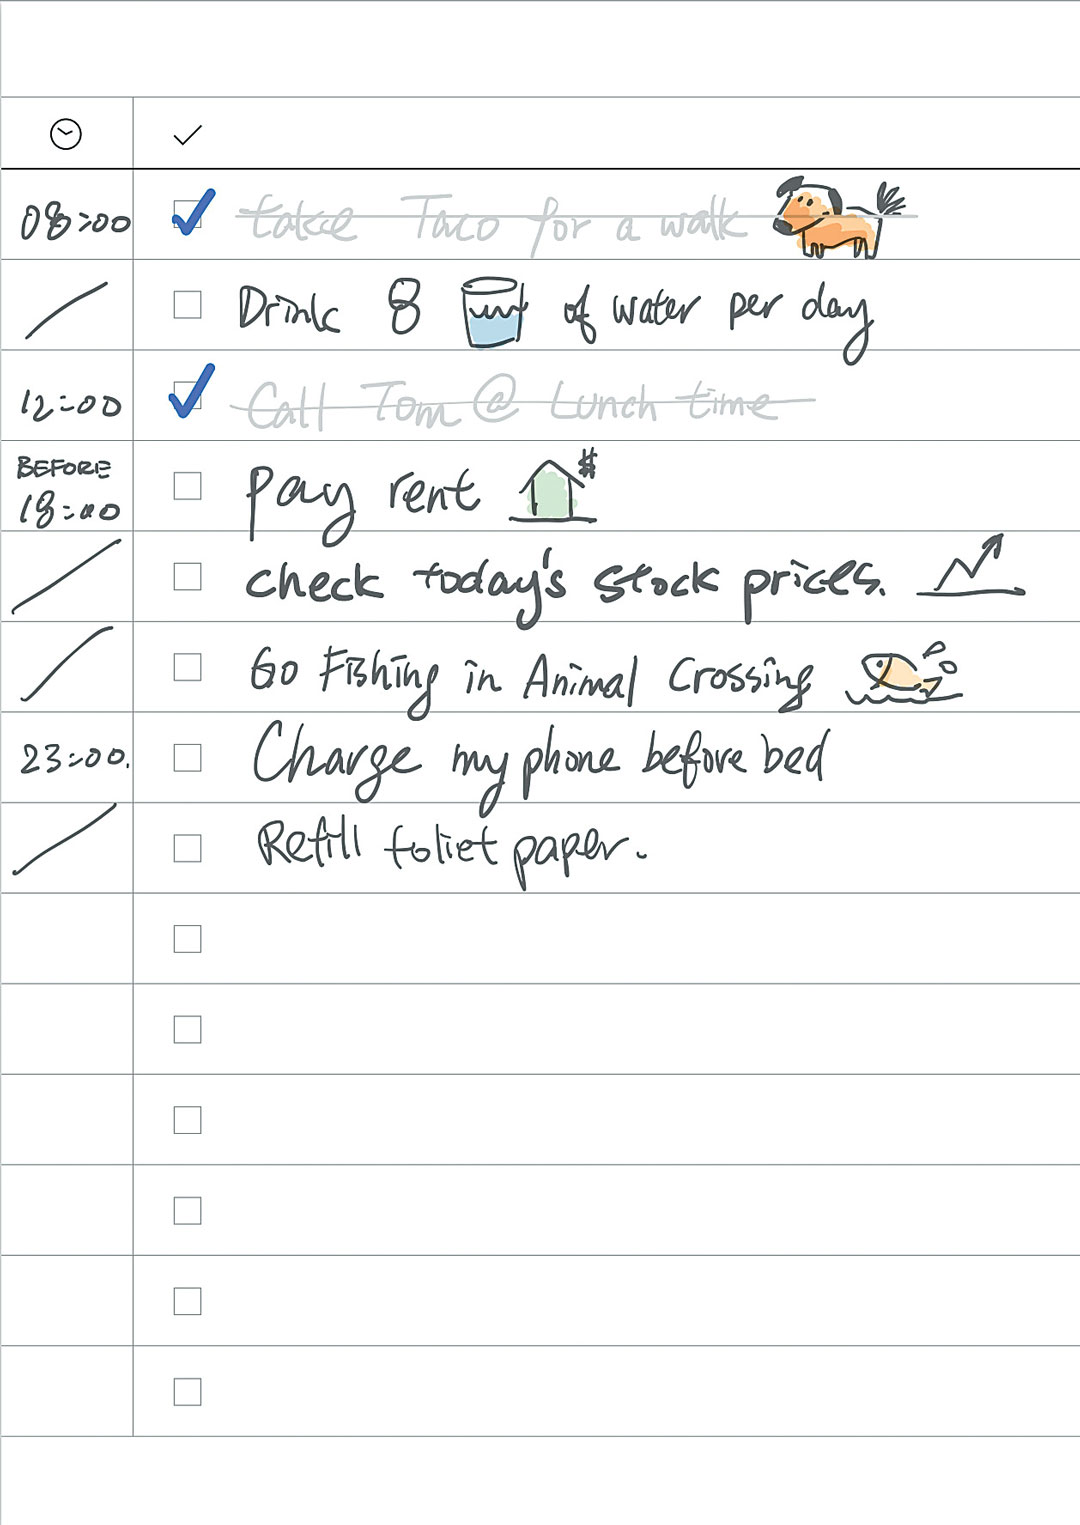 08:00 take Taco for a walk
Drink 8 of water per day
12:00 Call Tom @ Lunch time
BEFORE
18:00 Pay rent $
check today's stock prices.
Go Fishing in Animal Crossing
23:00. Charge my phone before bed
Refill toliet paper.